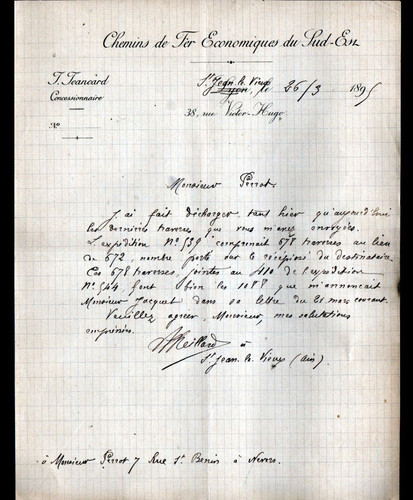 Chemins de Fer Economiques du Sud-Est
J. Jeancard
Concessionnaire
St Jean le Vieux
Lyon, le 26/3 1895
38, rue Victor-Hugo
No
Monsieur Perrot
J'ai fait décharger tant hier qu'aujourd'hui
les dernières traverses que vous m'avez envoyées.
L'expédition No 539 comprenait 678 traverses au lieu
de 672, nombre porté sur le récépissé du destinataire.
Ces 678 traverses, jointes au 410 de l'expédition
No 544 font bien les 1088 que m'annonçait
Monsieur Jacquet dans sa lettre du 21 mars courant.
Veuillez agréer, Monsieur, mes salutations
empressées.
à
St Jean le Vieux (Ain)
à Monsieur Perrot 7 Rue St Benin à Nevers.